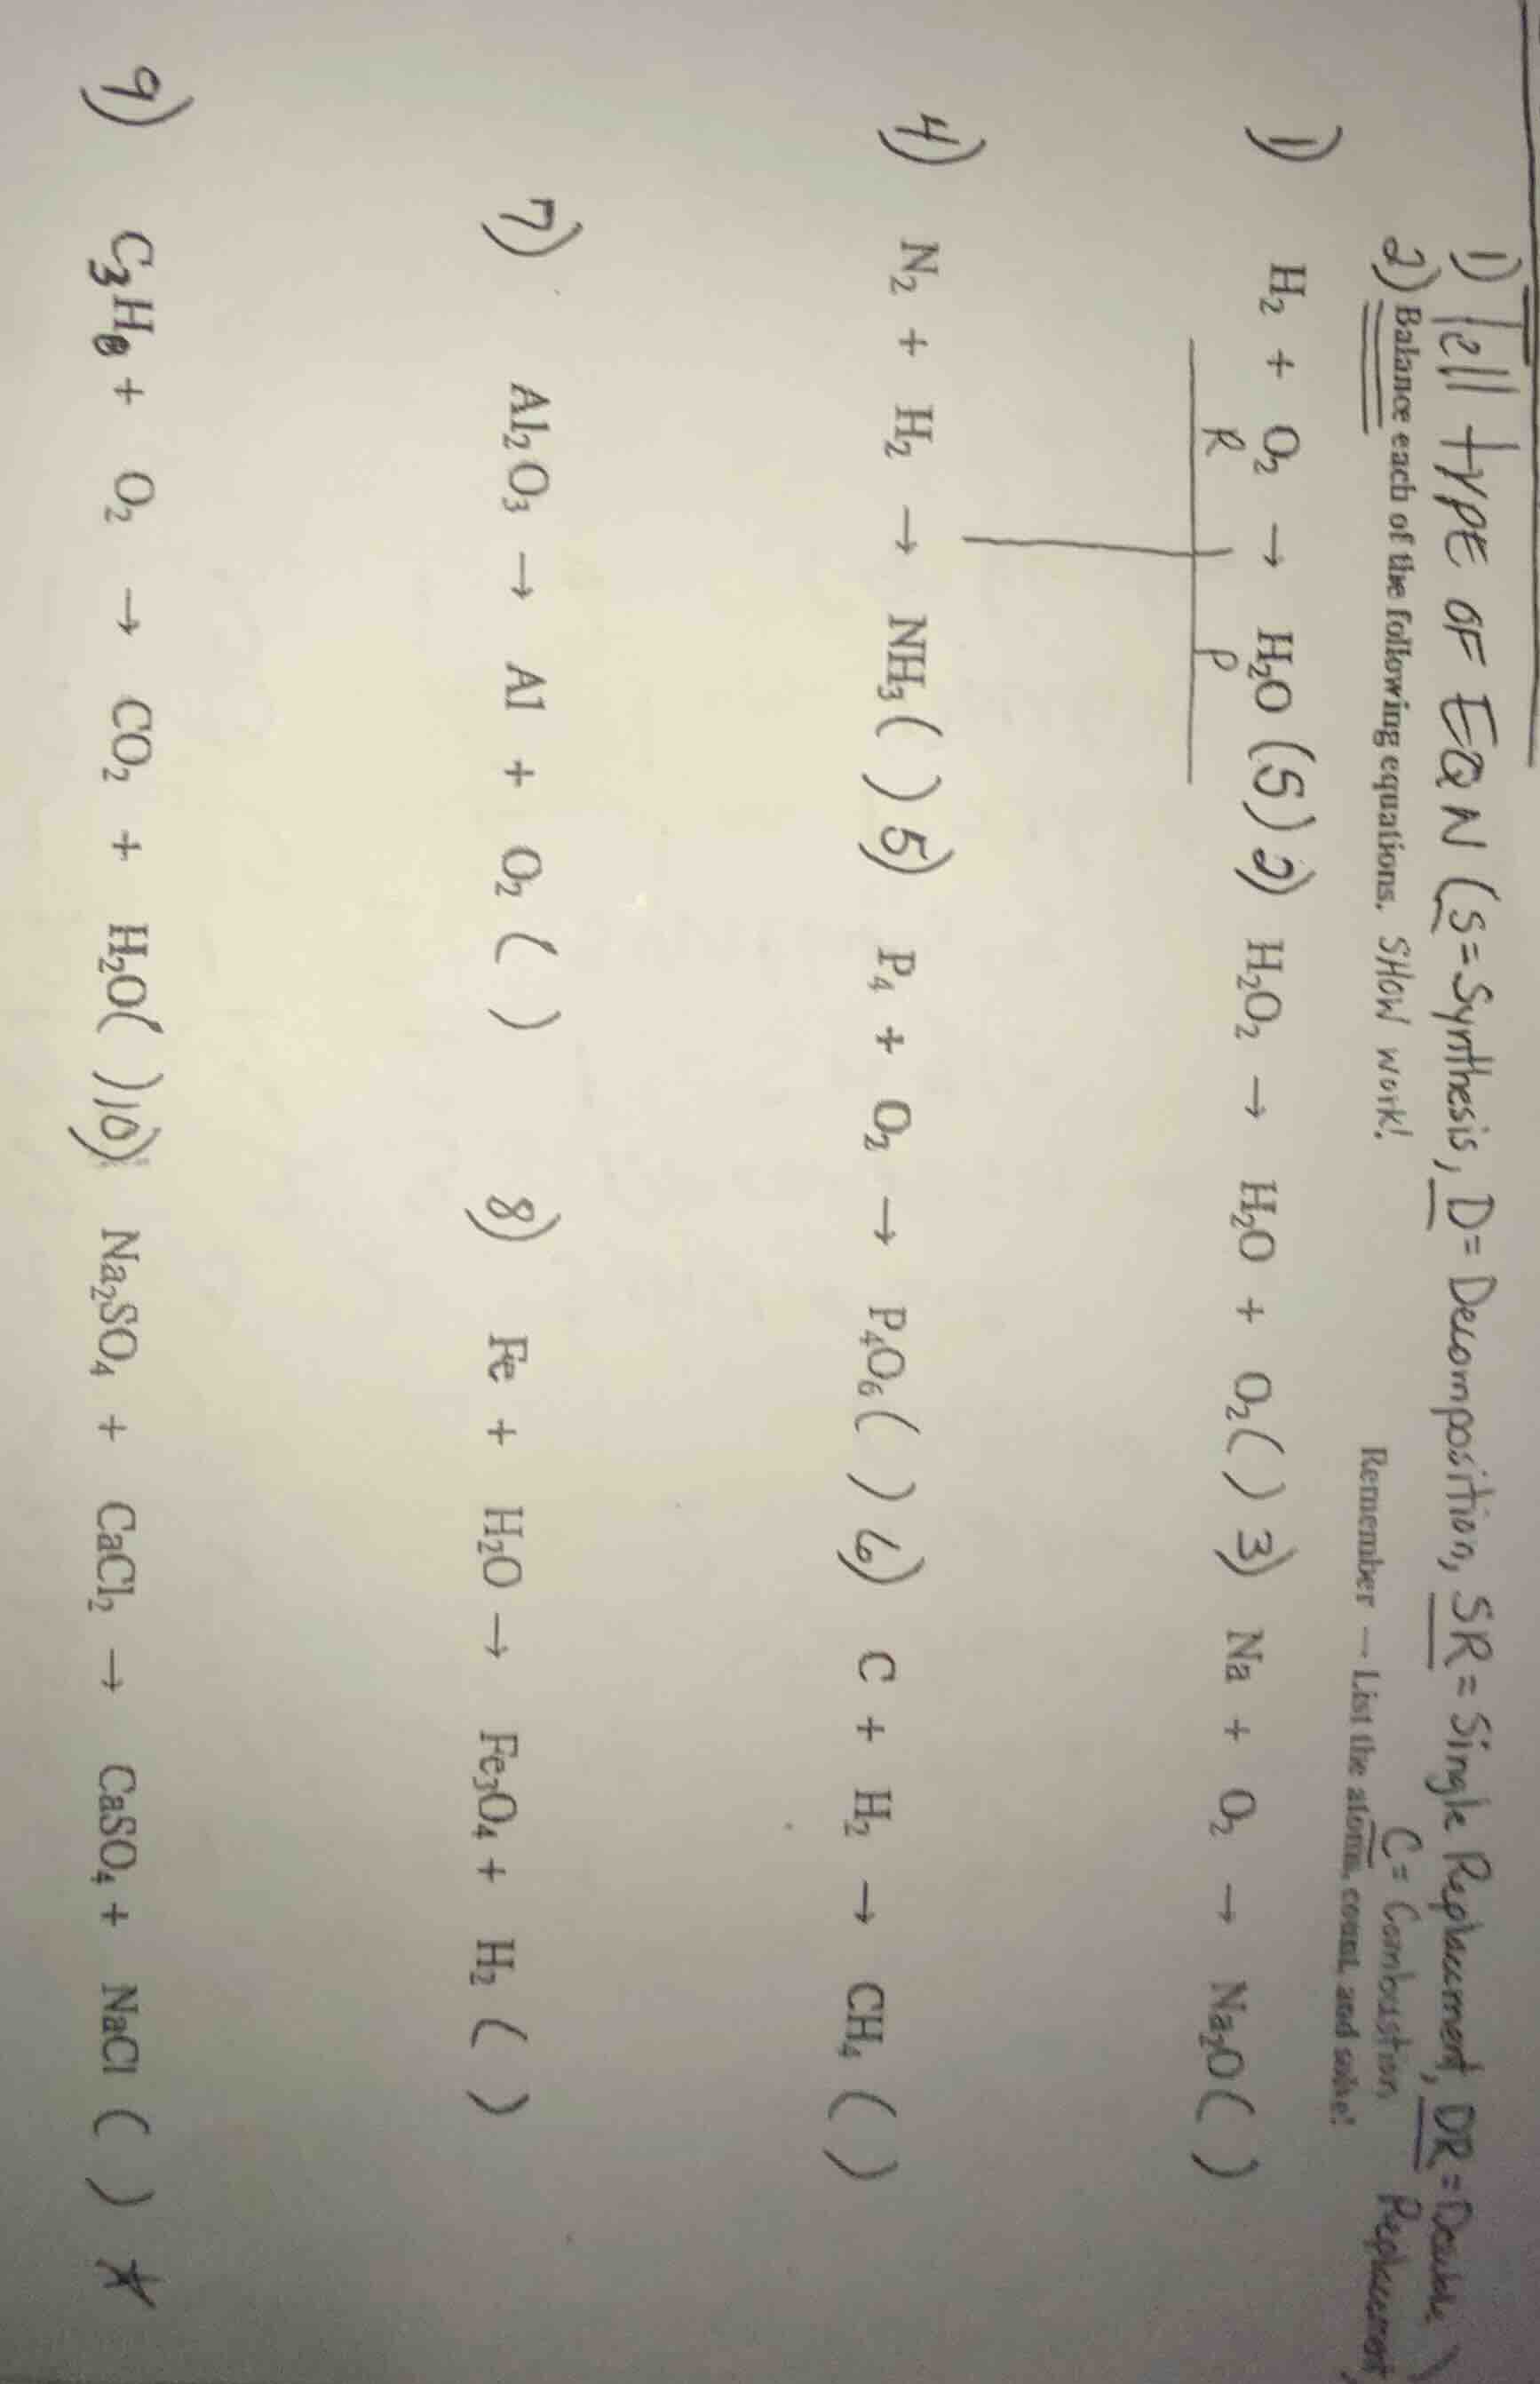 1) Tell type OF EQN (S=Synthesis, D= Decomposition, SR= Single Replacement, DR=Double Replacement)
2) Balance each of the following equations. SHOW work! C= Combustion
Remember — List the atoms, count, and solve!
1) H₂ + O₂ → H₂O (S) 2) H₂O₂ → H₂O + O₂ ( ) 3) Na + O₂ → Na₂O ( )
R P
4) N₂ + H₂ → NH₃ ( ) 5) P₄ + O₂ → P₄O₆ ( ) 6) C + H₂ → CH₄ ( )
7) Al₂O₃ → Al + O₂ ( ) 8) Fe + H₂O → Fe₃O₄ + H₂ ( )
9) C₃H₈ + O₂ → CO₂ + H₂O ( ) 10) Na₂SO₄ + CaCl₂ → CaSO₄ + NaCl ( )